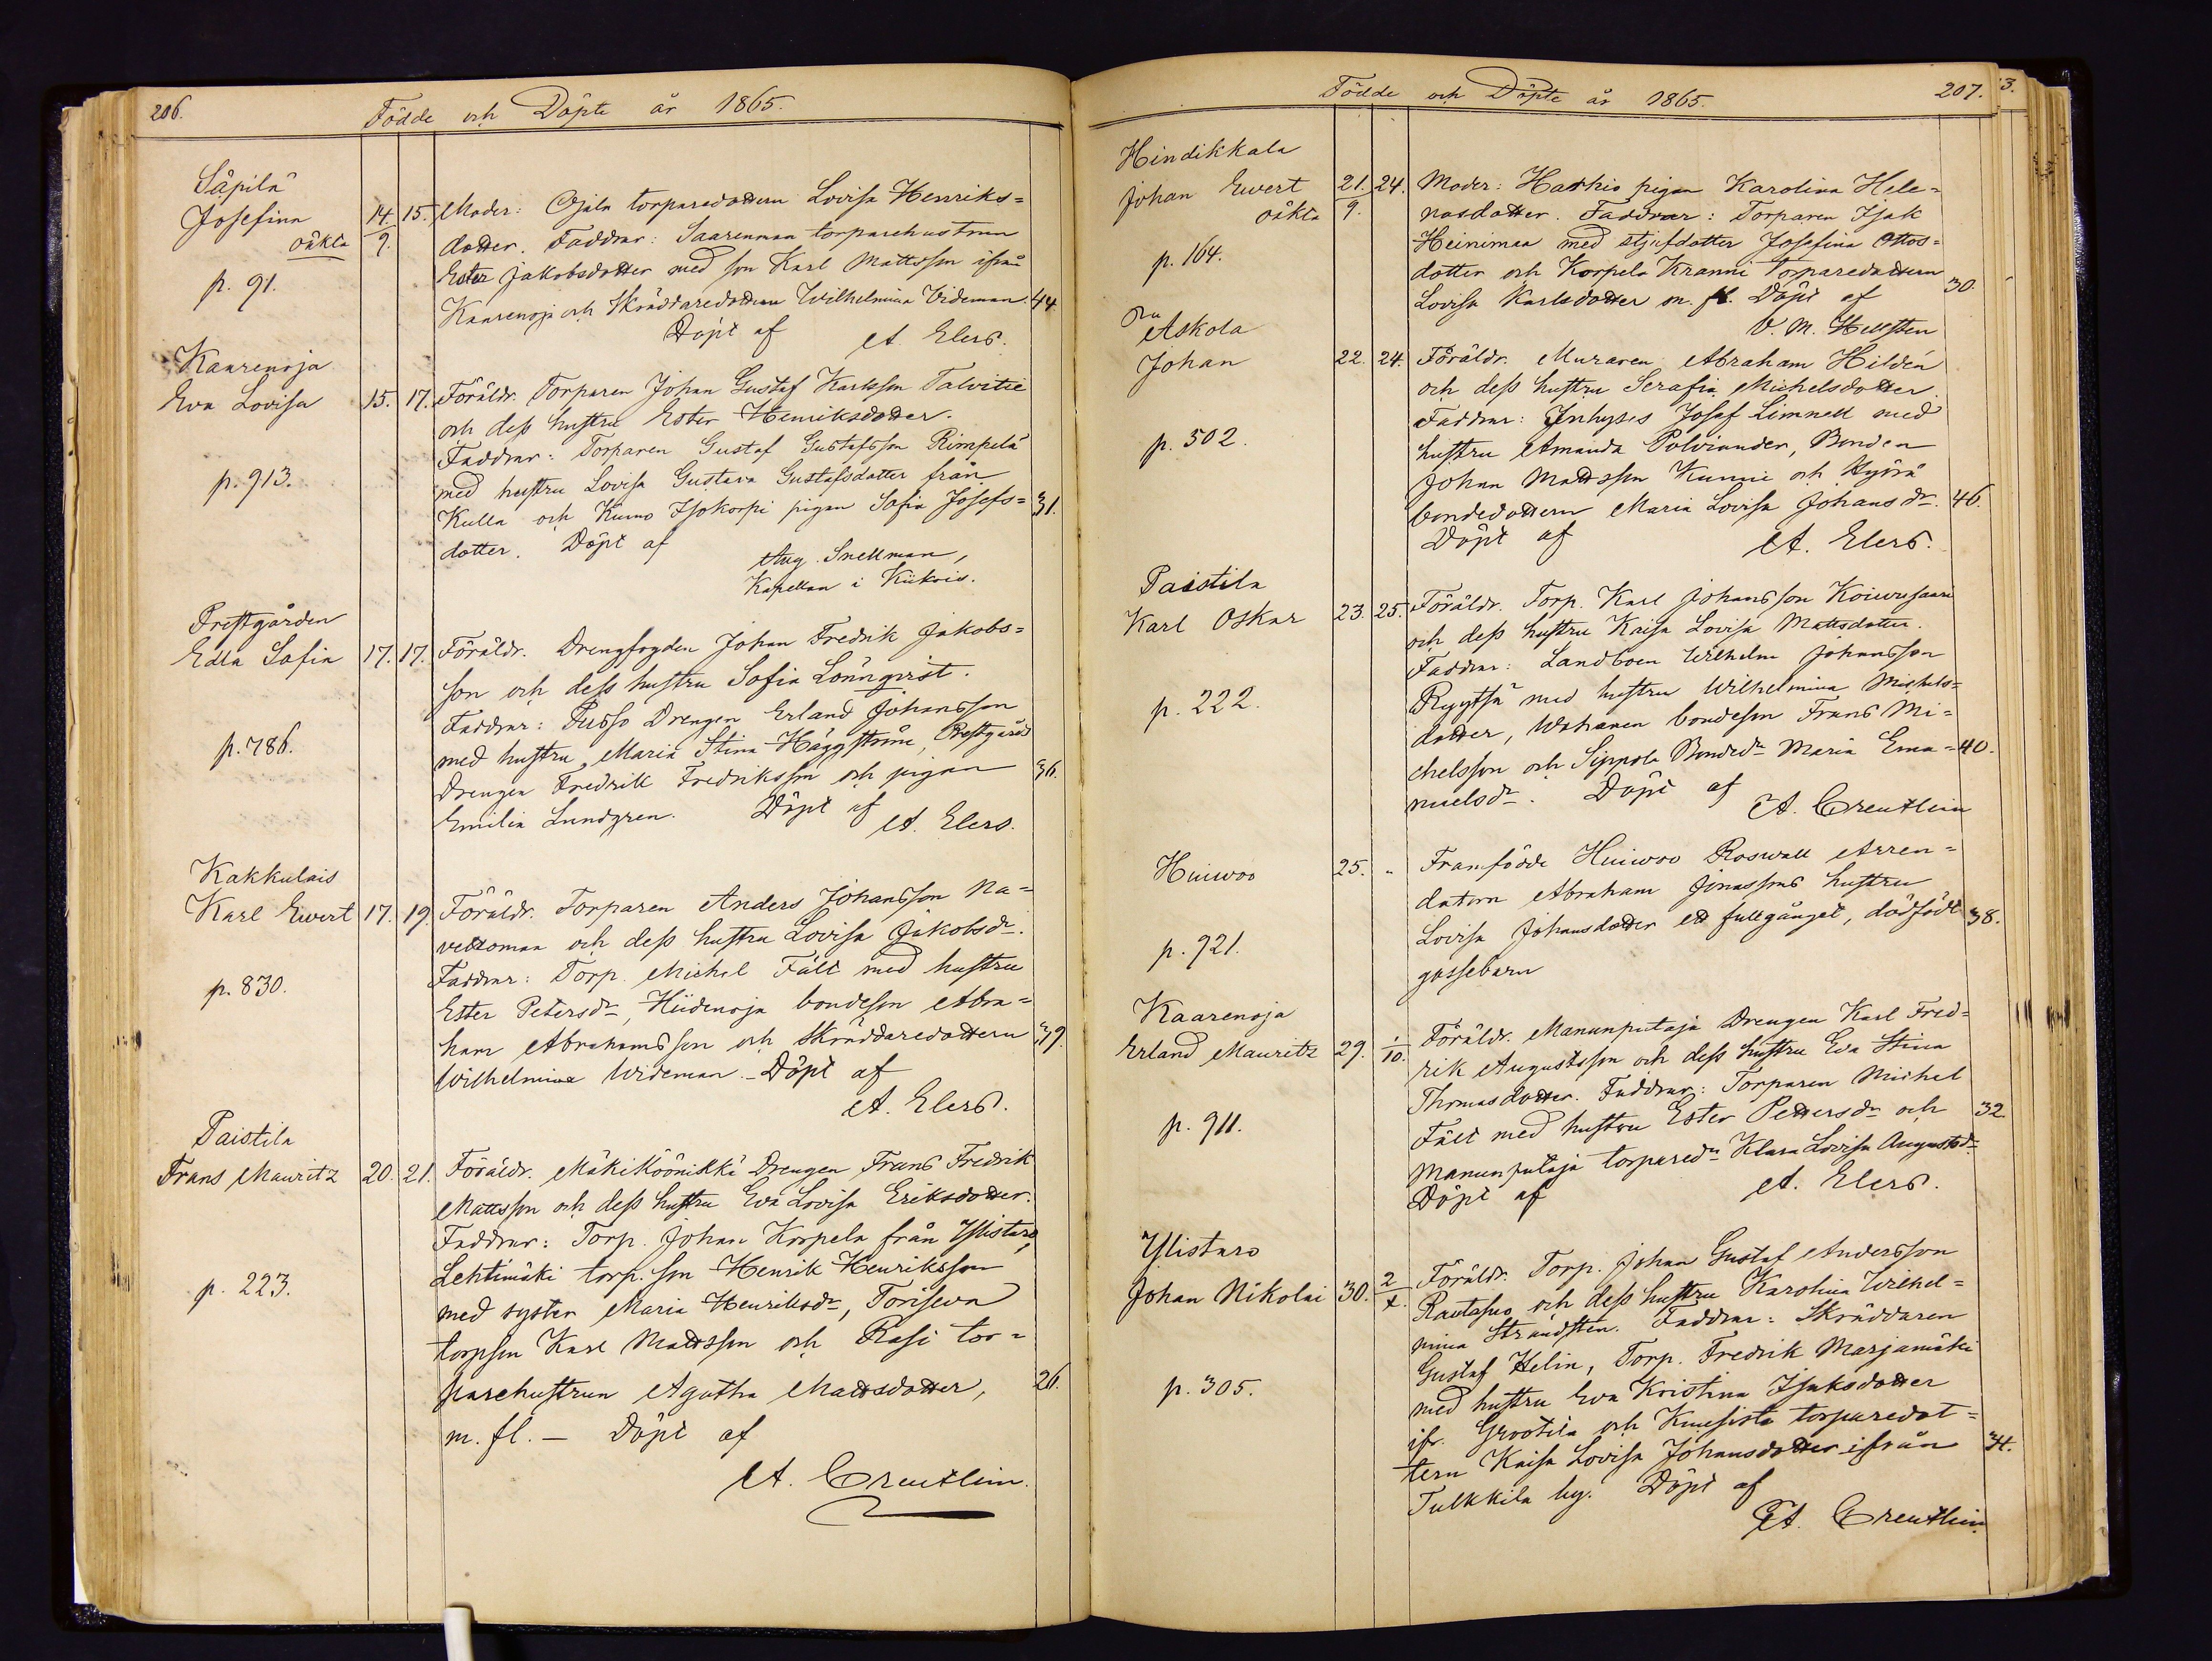 206.
Födde och Döpte år 1865.
Säpilä
Josefina 14. 15. Moder: Ojala torparedottern Lovisa Henriks=
oäkta 9. dotter. Faddrar: Saarenmaa torparehustrun
Ester Jakobsdotter med son Karl Mattsson ifrån
p. 91. Kaarenoja och Skräddaredottern Wilhelmina Videman. 44.
Döpt af A. Elers.
Kaarenoja
Eva Lovisa 15. 17. Föräldr. Torparen Johan Gustaf Karlsson Talvitie
och dess hustru Ester Henriksdotter.
Faddrar: Torparen Gustaf Gustafsson Rimpelä
p. 913. med hustru Lovisa Gustava Gustafsdotter från
Kulla och Kumo Isokorpi pigan Sofia Josefs= 31.
dotter. Döpt af
Aug. Snellman,
Kapellan i Kiikois.
Prestgården
Edla Sofia 17. 17. Föräldr. Drengfogden Johan Fredrik Jakobs=
son och dess hustru Sofia Lönnqvist.
Faddrar: Pusso Drengen Erland Johansson
p. 786. med hustru Maria Stina Häggström, Prestgårds
Drengen Fredrik Fredriksson och pigan 36.
Emilia Lundgren. Döpt af
A. Elers.
Kakkulais
Karl Evert 17. 19. Föräldr. Torparen Anders Johansson Na=
vettomaa och dess hustru Lovisa Jakobsdr.
Faddrar: Torp. Michel Fält med hustru
p. 830. Ester Petersdr, Hiidenoja bondeson Abra=
ham Abrahamsson och Skräddaredottern 39.
Wilhelmina Wideman. - Döpt af
A. Elers.
Paistila
Frans Mauritz 20. 21. Föräldr. Mäki Köönikkä Drengen Frans Fredrik
Mattsson och dess hustru Eva Lovisa Eriksdotter.
Faddrar: Torp. Johan Korpela från Ylistaro,
p. 223. Lehtimäki torp. son Henrik Henriksson
med syster Maria Henriksdr, Toriseva
torpson Karl Mattsson och Rasi tor=
parehustrun Agatha Mattsdotter, 26.
m. fl. - Döpt af
A. Creutlein.
Födde och Döpte år 1865.
207.
3.
Hindikkala
Johan Evert 21. 24. Moder: Harhio pigan Karolina Hele=
oäkta 9. nasdotter. Faddrar: Torparen Isak
Heinimaa med stjufdotter Josefina Ottos=
p. 164. dotter och Korpela Kranni torparedottern
Lovisa Karlsdotter m. fl. Döpt af 30.
V. M. Hellsten
Askola
Johan 22. 24. Föräldr. Muraren Abraham Hildén
och dess hustru Serafia Michelsdotter.
Faddrar: Inhyses Josef Limnell med
p. 502. hustru Amanda Polviander, Bonden
Johan Mattsson Kunni och Hyörä
bondedottern Maria Lovisa Johansdr. 46.
Döpt af
A. Elers.
Paistila
Karl Oskar 23. 25. Föräldr. Torp. Karl Johansson Koivusaari
och dess hustru Kaisa Lovisa Mattsdotter.
Faddrar: Landboen Wilhelm Johansson
p. 222. Ryytsä med hustru Wilhelmina Michels=
dotter, Wahanen bondeson Frans Mi=
chelsson och Sippola Bondedr Maria Ema= 40.
nuelsdr. Döpt af
A. Creutlein
Huiwoo 25. " Framfödde Huiwoo Roswall Arren=
datorn Abraham Jonassons hustru
p. 921. Lovisa Johansdotter ett fullgånget, dödfödt 38.
gossebarn
Kaarenoja
Erland Mauritz 29. 1/10. Föräldr. Manunputaja Drengen Karl Fred=
rik Augustsson och dess hustru Eva Stina
Thomasdotter. Faddrar: Torparen Michel
p. 911. Fält med hustru Ester Pettersdr och 32
Manunputaja torparedr Klara Lovisa Augustsdr
Döpt af A. Elers.
Ylistaro
Johan Nikolai 30. 2/x. Föräldr. Torp. Johan Gustaf Andersson
Rautasuo och dess hustru Karolina Wilhel=
mina Strandsten. Faddrar: Skräddaren
Gustaf Helin, Torp. Fredrik Marjamäki
p. 305. med hustru Eva Kristina Isaksdotter
ifr. Grootila och Kuusisto torparedot=
tern Kaisa Lovisa Johansdotter ifrån 34.
Tulkkila by. Döpt af
A. Creutlein